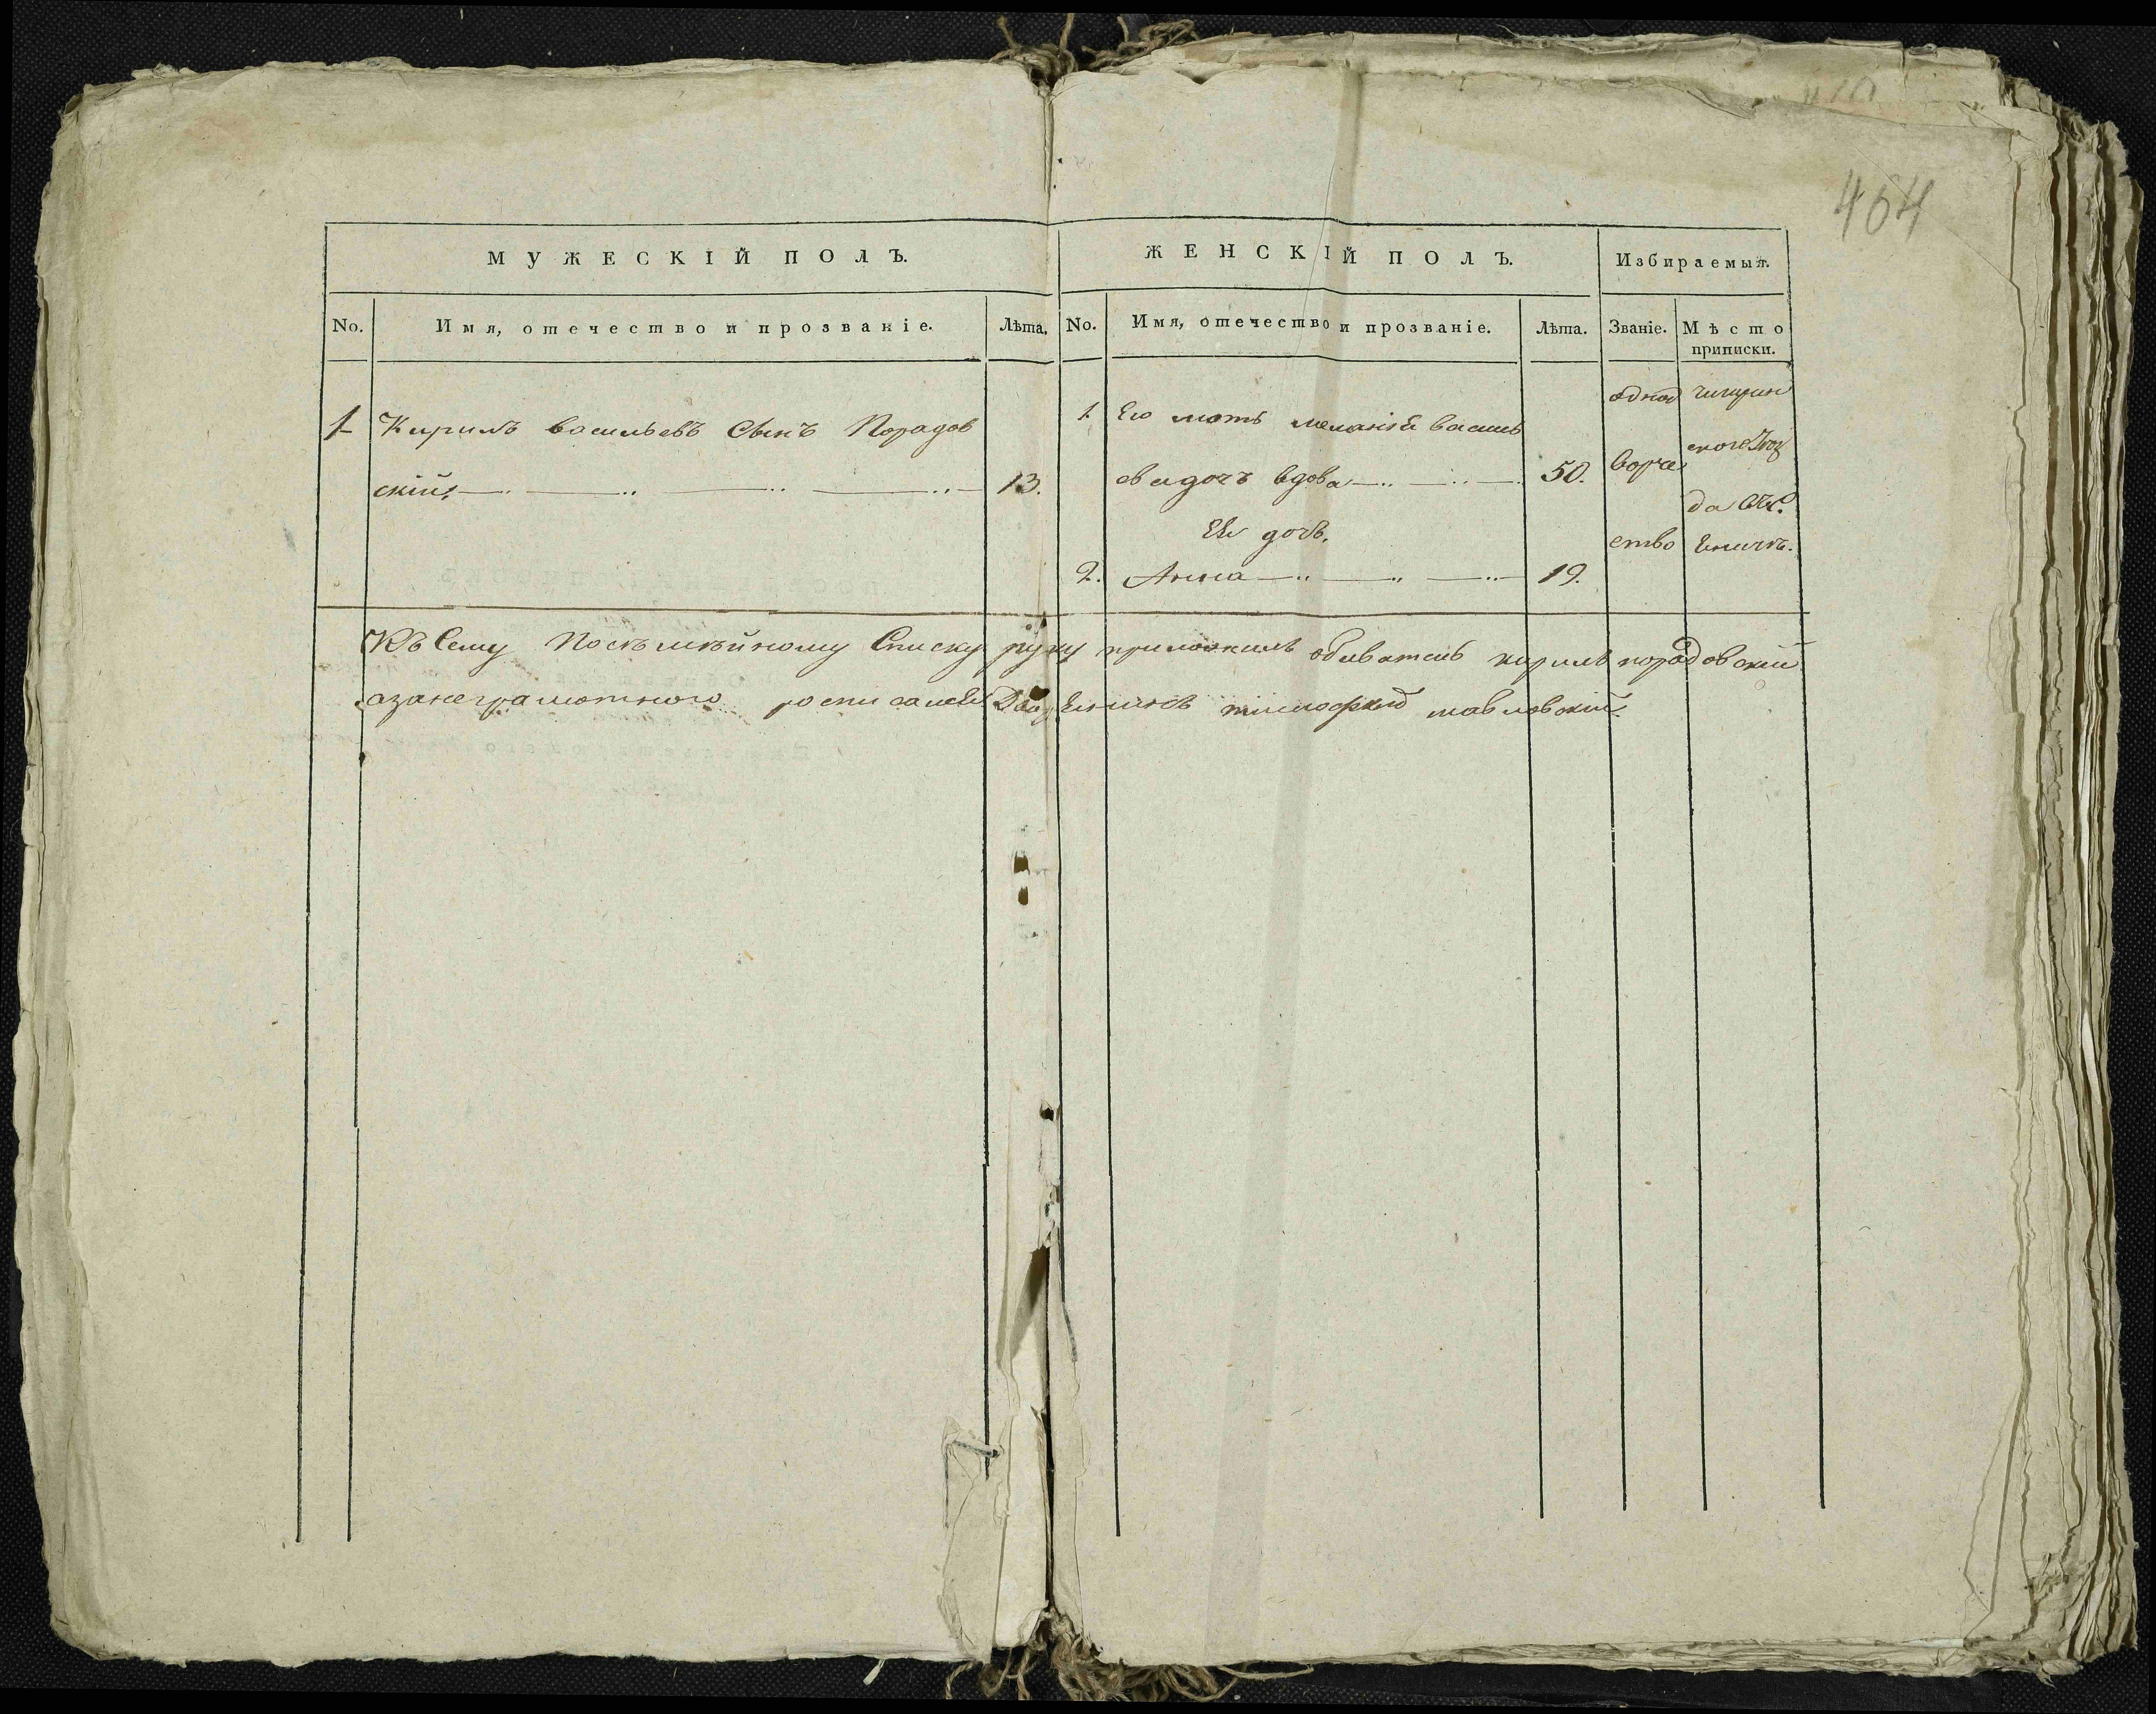 464
МУЖЕСКІЙ ПОЛЪ.
ЖЕНСКІЙ ПОЛЪ.
Избираемыя.
No.
Имя, отечество и прозваніе.
Лѣта.
No.
Имя, отечество и прозваніе.
Лѣта.
Званіе.
Мѣсто
приписки.
1
Кирилъ васильевъ Сынъ Порадов
скій
13.
1.
Его мать меланія василь
ева дочъ вдова
50.
Ея дочь.
2.
Анна
19.
однод
ворче
ство
чигирин
ского
да
Къ Сему Посѣмѣйному Списку руку приложилъ обыватель кирилъ порадовскій
азанеграмотного росписался тимофей павловский